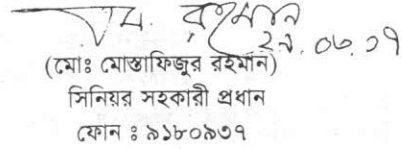 রহমান
২৯.০৬.১৭
(মোঃ মোস্তাফিজুর রহমান)
সিনিয়র সহকারী প্রধান
ফোন ঃ ৯১৮০৯৩৭